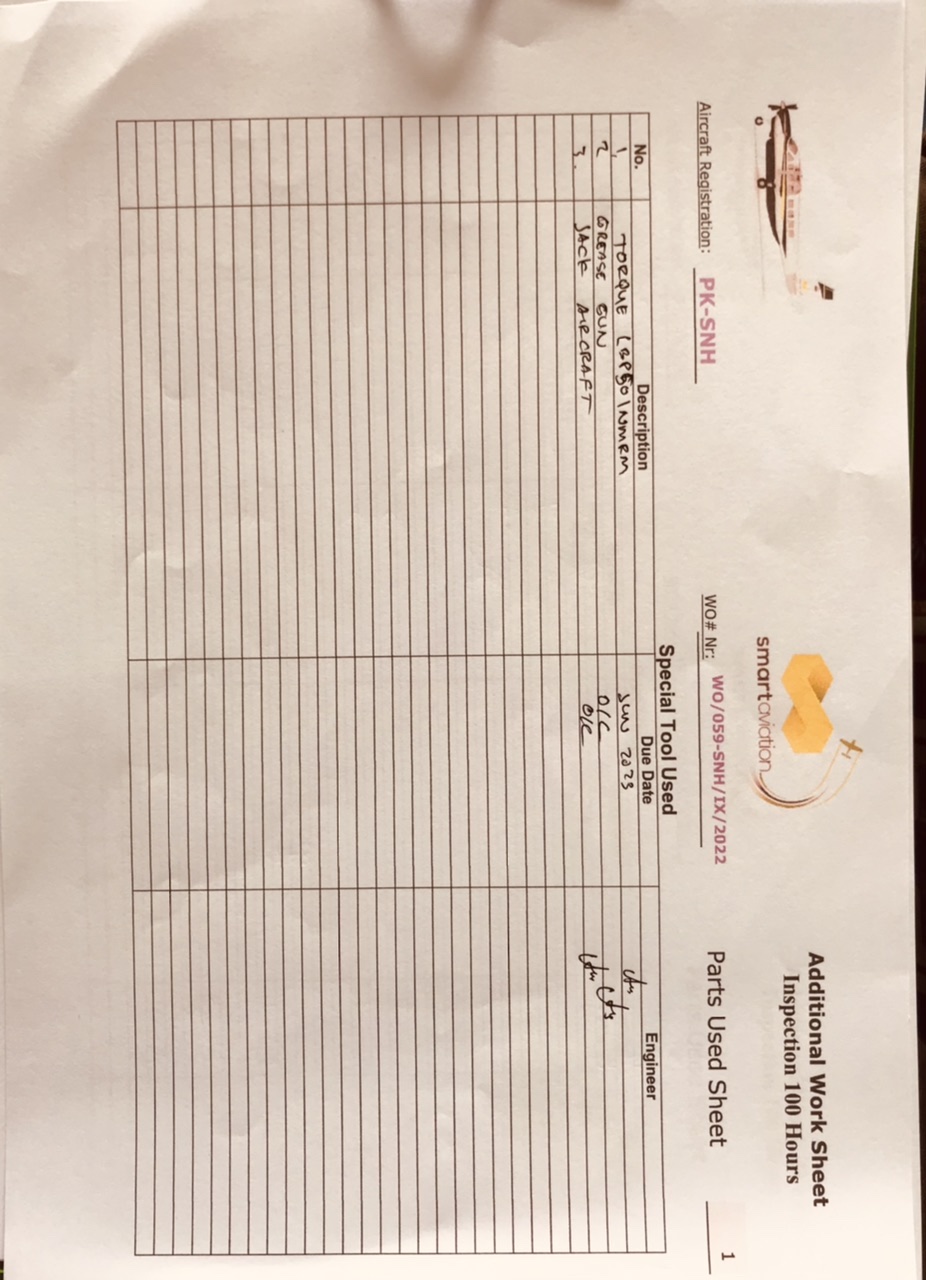 smartaviation
Additional Work Sheet
Inspection 100 Hours
Aircraft Registration: PK-SNH
WO# Nr: WO/059-SNH/IX/2022
Parts Used Sheet 1
Special Tool Used
No. Description Due Date Engineer
1. TORQUE JUN 2023
2 GREASE GUN O/C
3. JACK AIRCRAFT O/C